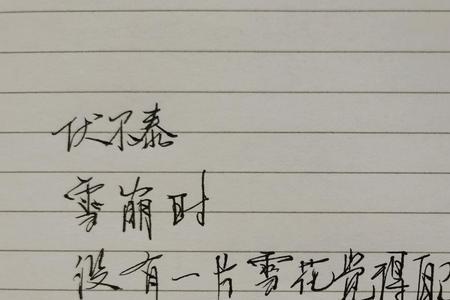 伏尔泰
雪崩时
没有一片雪花觉得